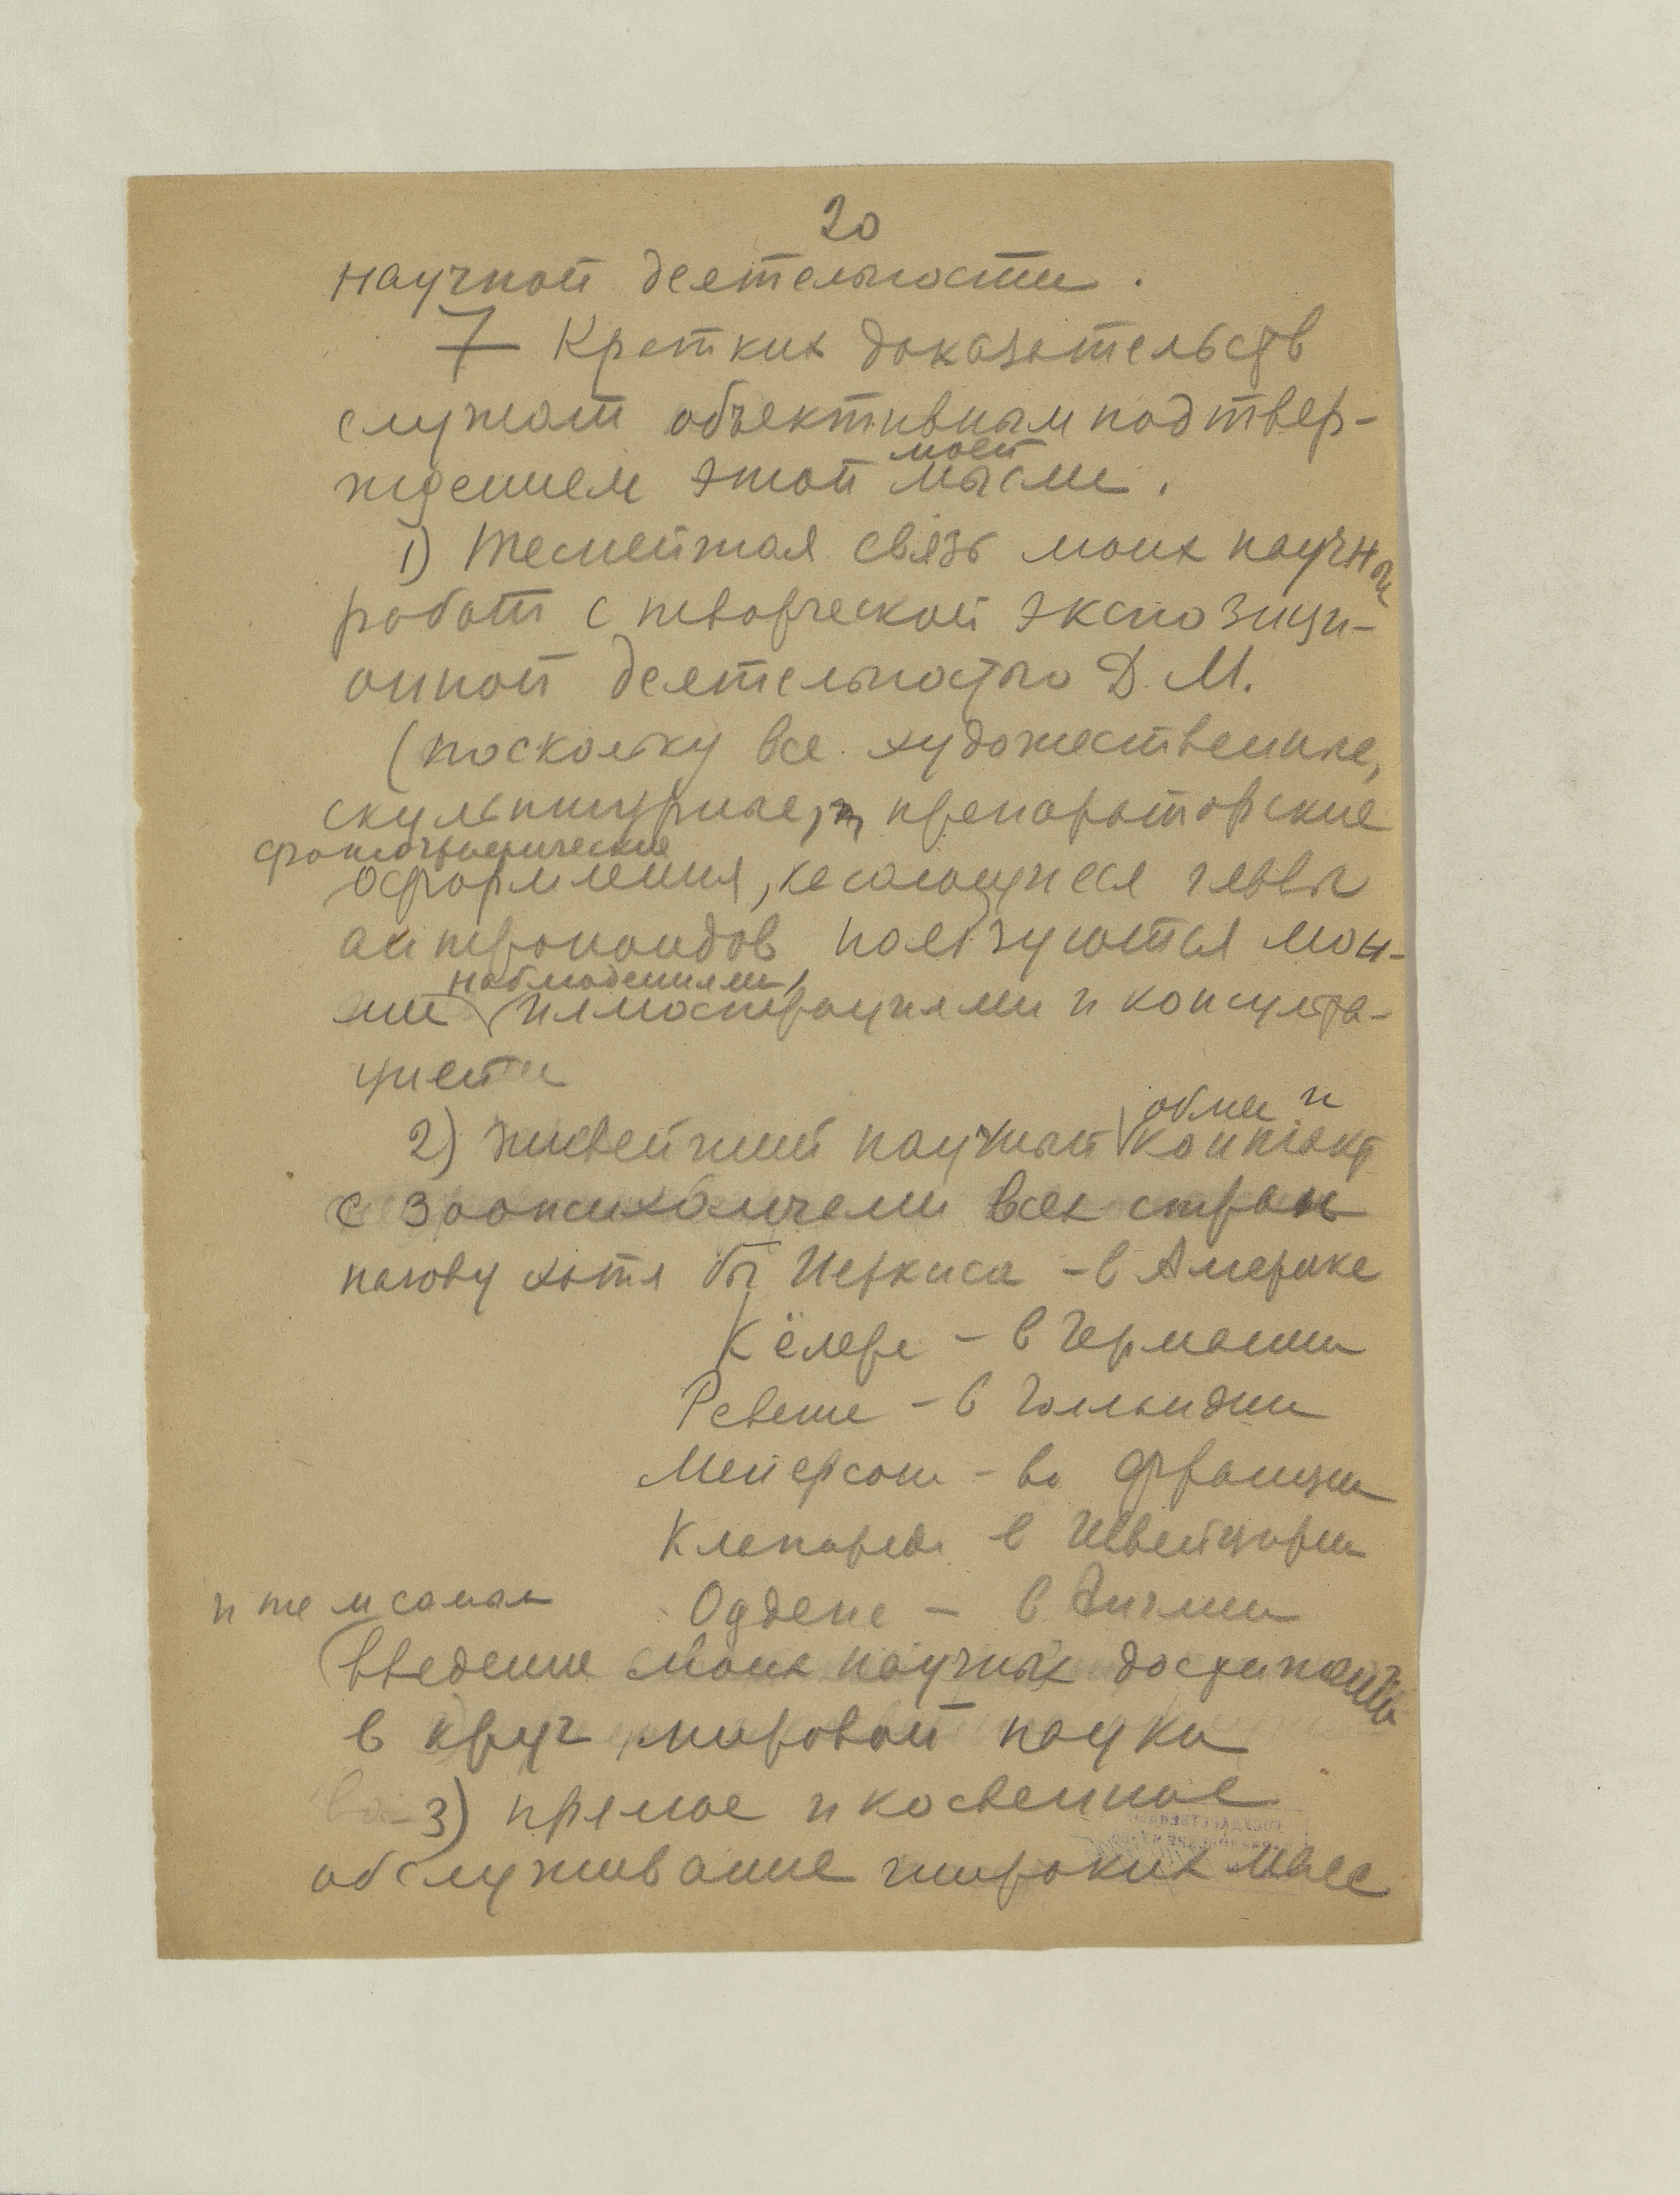 20
научной деятельности.
7 кратких доказательств
служат объективным подтвер-
моей
ждением этой мысли.
1) теснейшая связь моих научных
работ с творческой экспозици-
онной деятельностью Д. М.
(поскольку все художественные,
скульптурные, препараторские
фототехнические
оформления, касающиеся главы
антропоидов пользуются мои-
наблюдениями,
ми иллюстрациями и консульта-
цией
2) живейший научный контакт
обмен и
с зоопсихологами всех стран
назову хотя бы Иеркиса - в Америке
Кёлера - в Германии
Ревеша - в Голландии
Мейерсона - во Франции
Клапареда в Швейцарии
и тем самым
Одена - в Англии
введение моих научных достижений
в круг мировой науки
3) прямое и косвенное
обслуживание широких масс